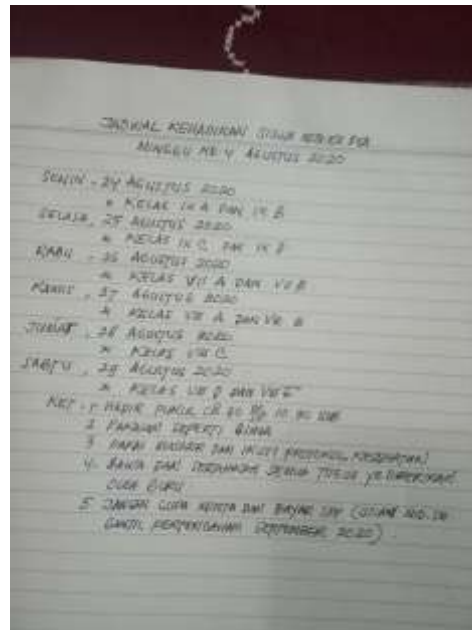 JADWAL KEHADIRAN SISWA
MINGGU KE 4 AGUSTUS 2020
SENIN, 24 AGUSTUS 2020
* KELAS IX A DAN IX B
SELASA, 25 AGUSTUS 2020
* KELAS IX C DAN IX D
RABU, 26 AGUSTUS 2020
* KELAS VII A DAN VII B
KAMIS, 27 AGUSTUS 2020
* KELAS VIII A DAN VIII B
JUMAT, 28 AGUSTUS 2020
* KELAS VIII C
SABTU, 29 AGUSTUS 2020
* KELAS VIII D DAN VIII E
KET. 1 HADIR PUKUL
2 PAKAIAN SEPERTI BIASA
3 PAKAI MASKER DAN IKUTI PROTOKOL KESEHATAN
4. BAWA DAN SEMUA TUGAS YG DIBERIKAN
OLEH GURU
5 JANGAN LUPA MINTA DAN BAYAR SPP
SEPTEMBER 2020)